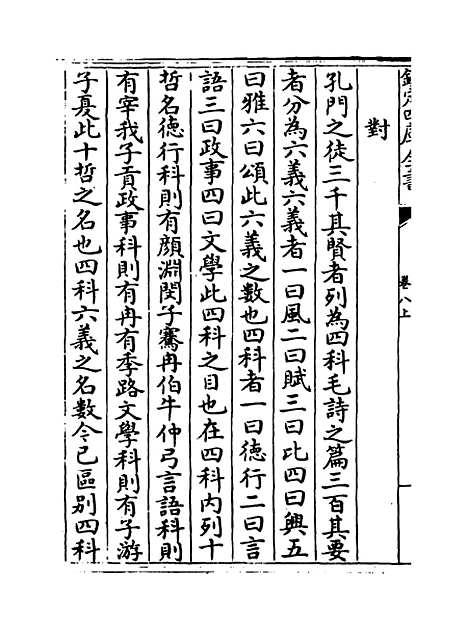 欽定四庫全書
卷八上
一
對
孔門之徒三千其賢者列為四科毛詩之篇三百其要
者分為六義六義者一曰風二曰賦三曰比四曰興五
曰雅六曰頌此六義之數也四科者一曰徳行二曰言
語三曰政事四曰文學此四科之目也在四科内列十
哲名徳行科則有顔淵閔子騫冉伯牛仲弓言語科則
有宰我子貢政事科則有冉有季路文學科則有子游
子夏此十哲之名也四科六義之名數今已區别四科